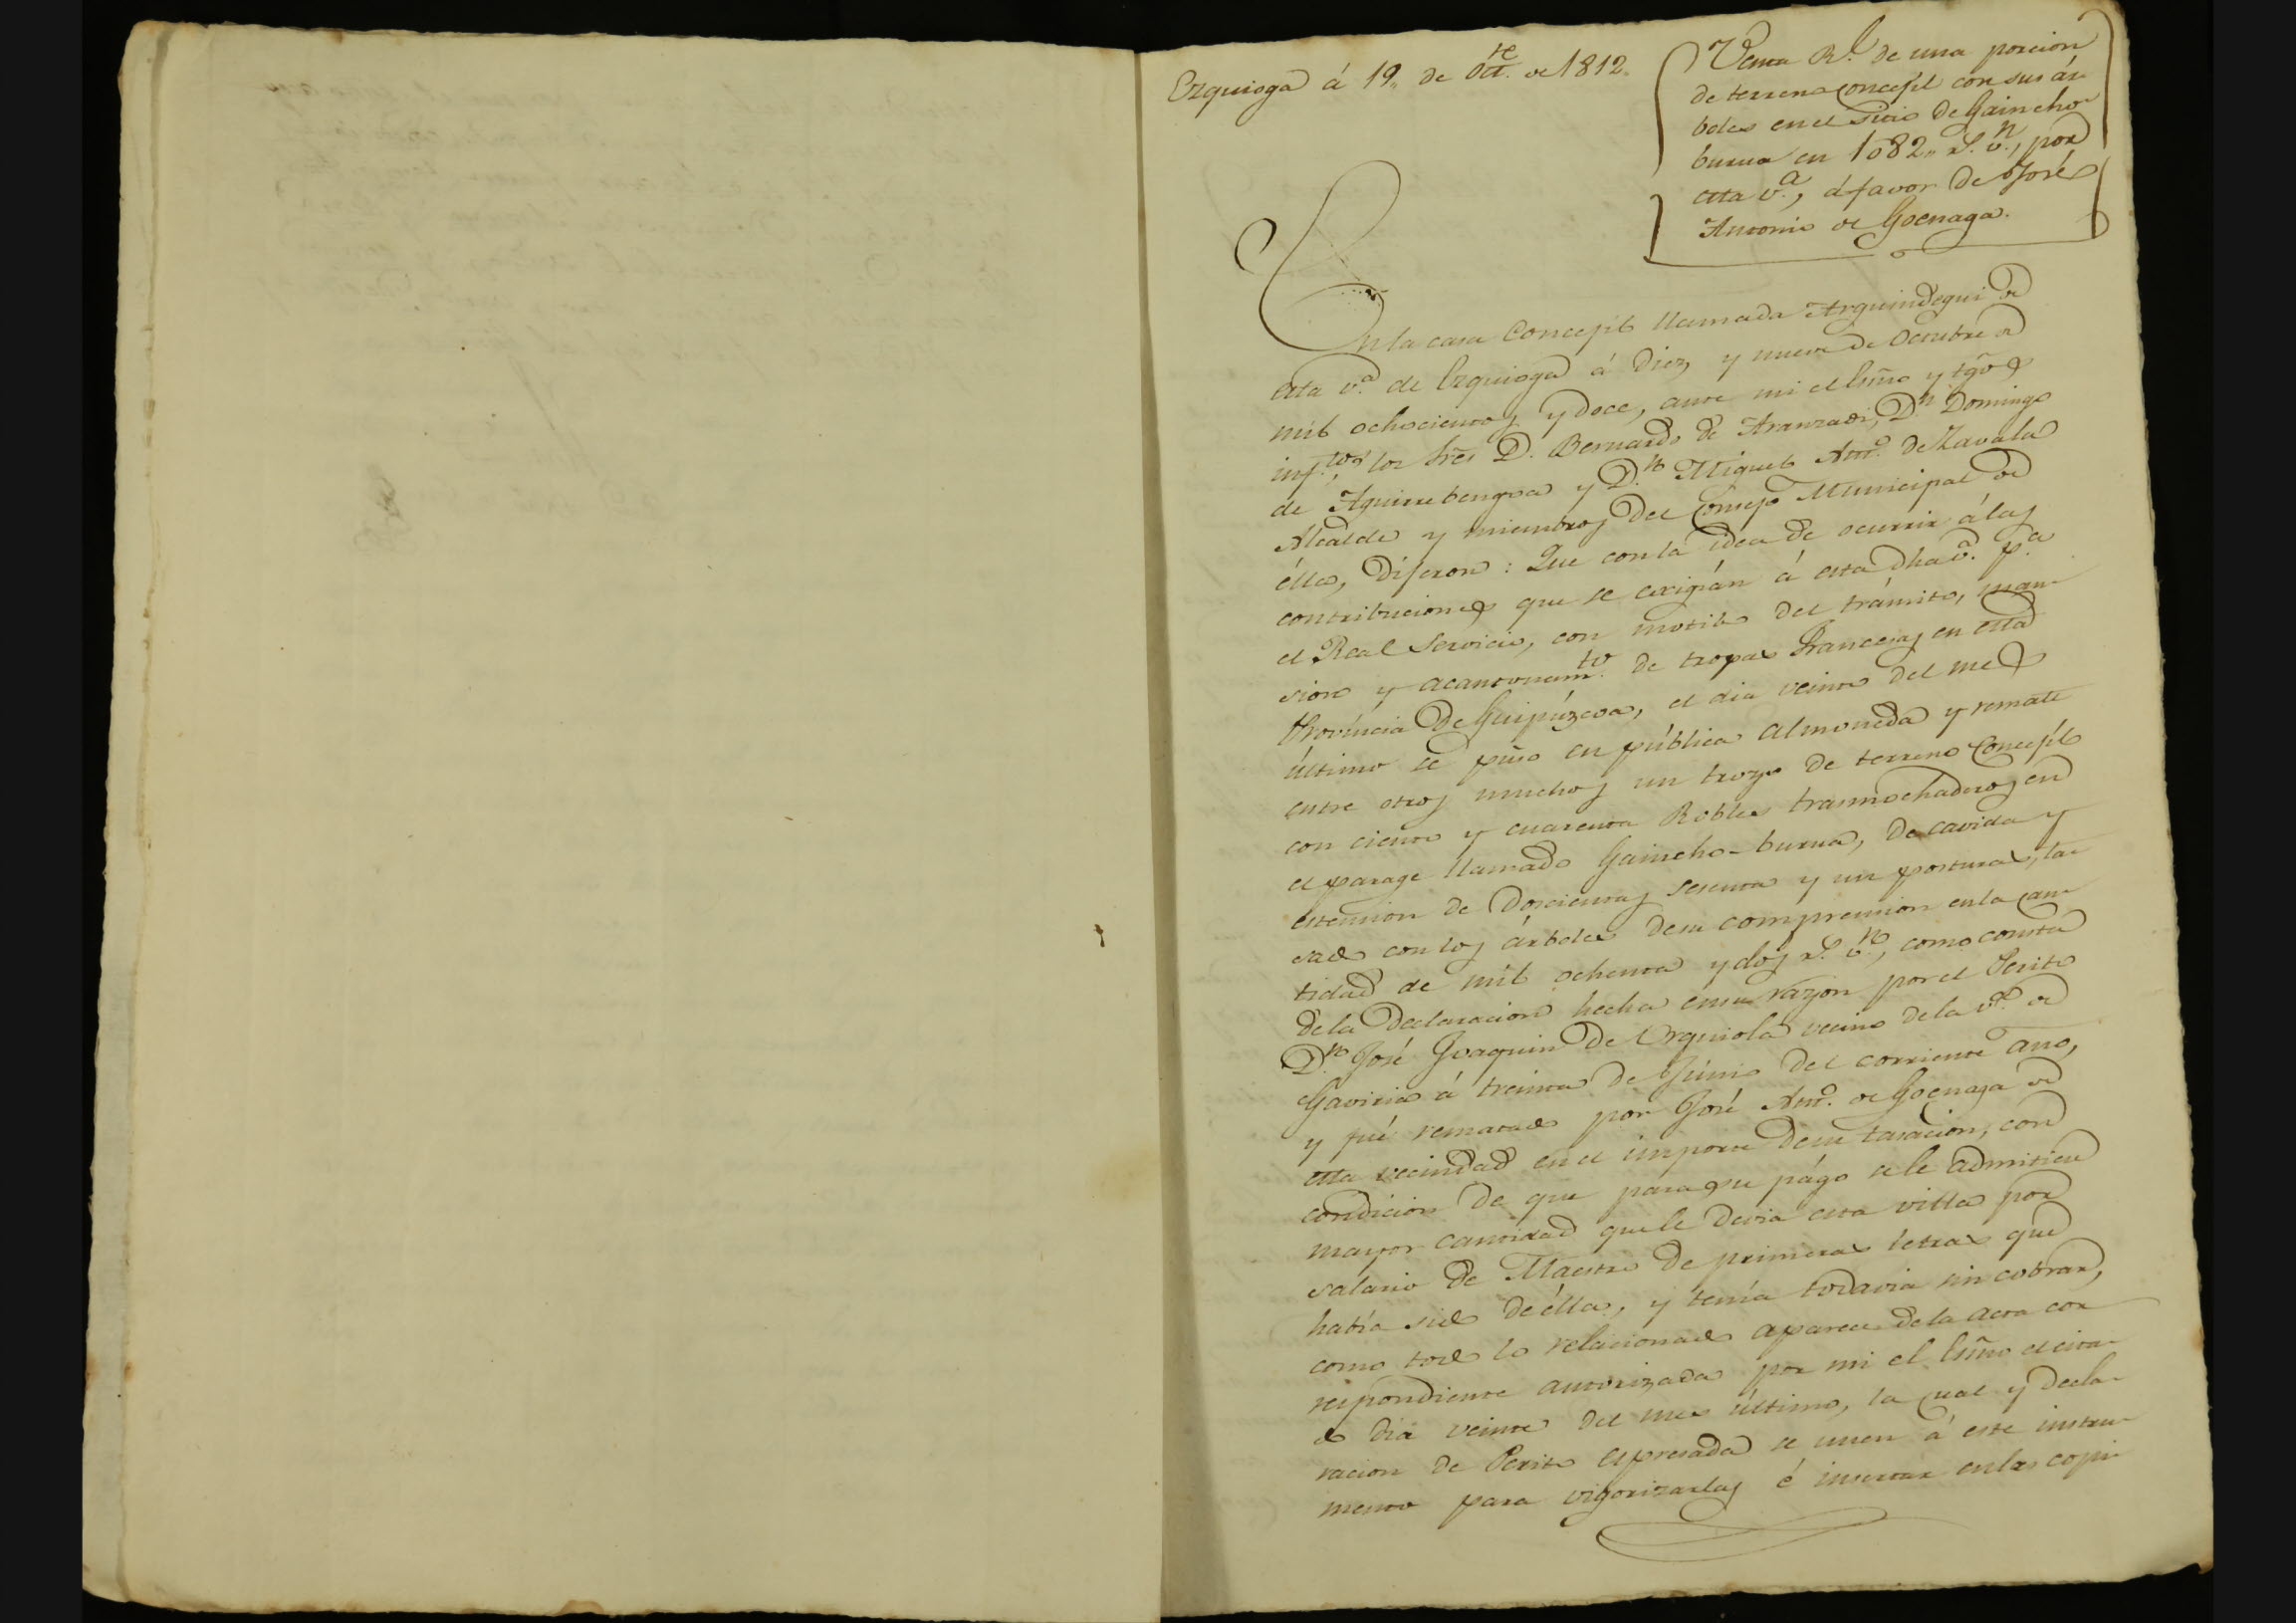 Ezquioga á 19,, de Ote. de 1812.
Venta Rl. de una porcion
de terreno concejil con sus ár-
boles en el sitio de Gaincho-
burua en 1082,, rs. vn., por
esta va., á favor de José
Antonio de Goenaga.
En la casa Concejil llamada Arguindegui de
esta va. de Ezquioga á diez y nueve de Octubre de
mil ochocientos y doce, ante mi el Essno y tgos
inf.tos, los Sres D. Bernardo de Aranzadi, Dn Domingo
de Aguirrebengoa y Dn. Miguel Anto. de Zavala
Alcalde y miembros del Consejo Municipal de
élla, Dijeron: Que con la idea de ocurrir á las
contribuciones que se exigián á esta dha va. pa.
el Real Servicio, con motibo del tránsito, man-
sion y acantonamto. de tropas Francesas en esta
Provincia de Guipúzcoa, el dia veinte del mes
último se puso en pública almoneda y remate
entre otros muchos un trozo de terreno Concejil
con ciento y cuarenta Robles trasmochaderos en
el parage llamado Gaincho-burua, de cavida y
estension de doscientas sesenta y un posturas, ta-
sado con los árboles de su compression en la can-
tidad de mil ochenta y dos rs. vn., como consta
de la declaracion hecha en su razon por el Perito
Dn. José Joaquin de Orguiola vecino de la va. de
Gaviria á treinta de Junio del corriente año,
y fué rematado por José Anto. de Goenaga de
esta vecindad en el importe de su tasacion, con
condicion de que para su págo se le admitiese
mayor cantidad que le devia esta villa por
salario de Maestro de primeras letras que
había sido de élla, y tenía todavia sin cobrar,
como todo lo relacionado aparece de la acta cor-
respondiente autorizada por mi el Essno el cita-
do dia veinte del mes último, la cual y decla-
racion de Perito espresada se unen á este instru-
mento para vigorizarlas é insertar en las copi-